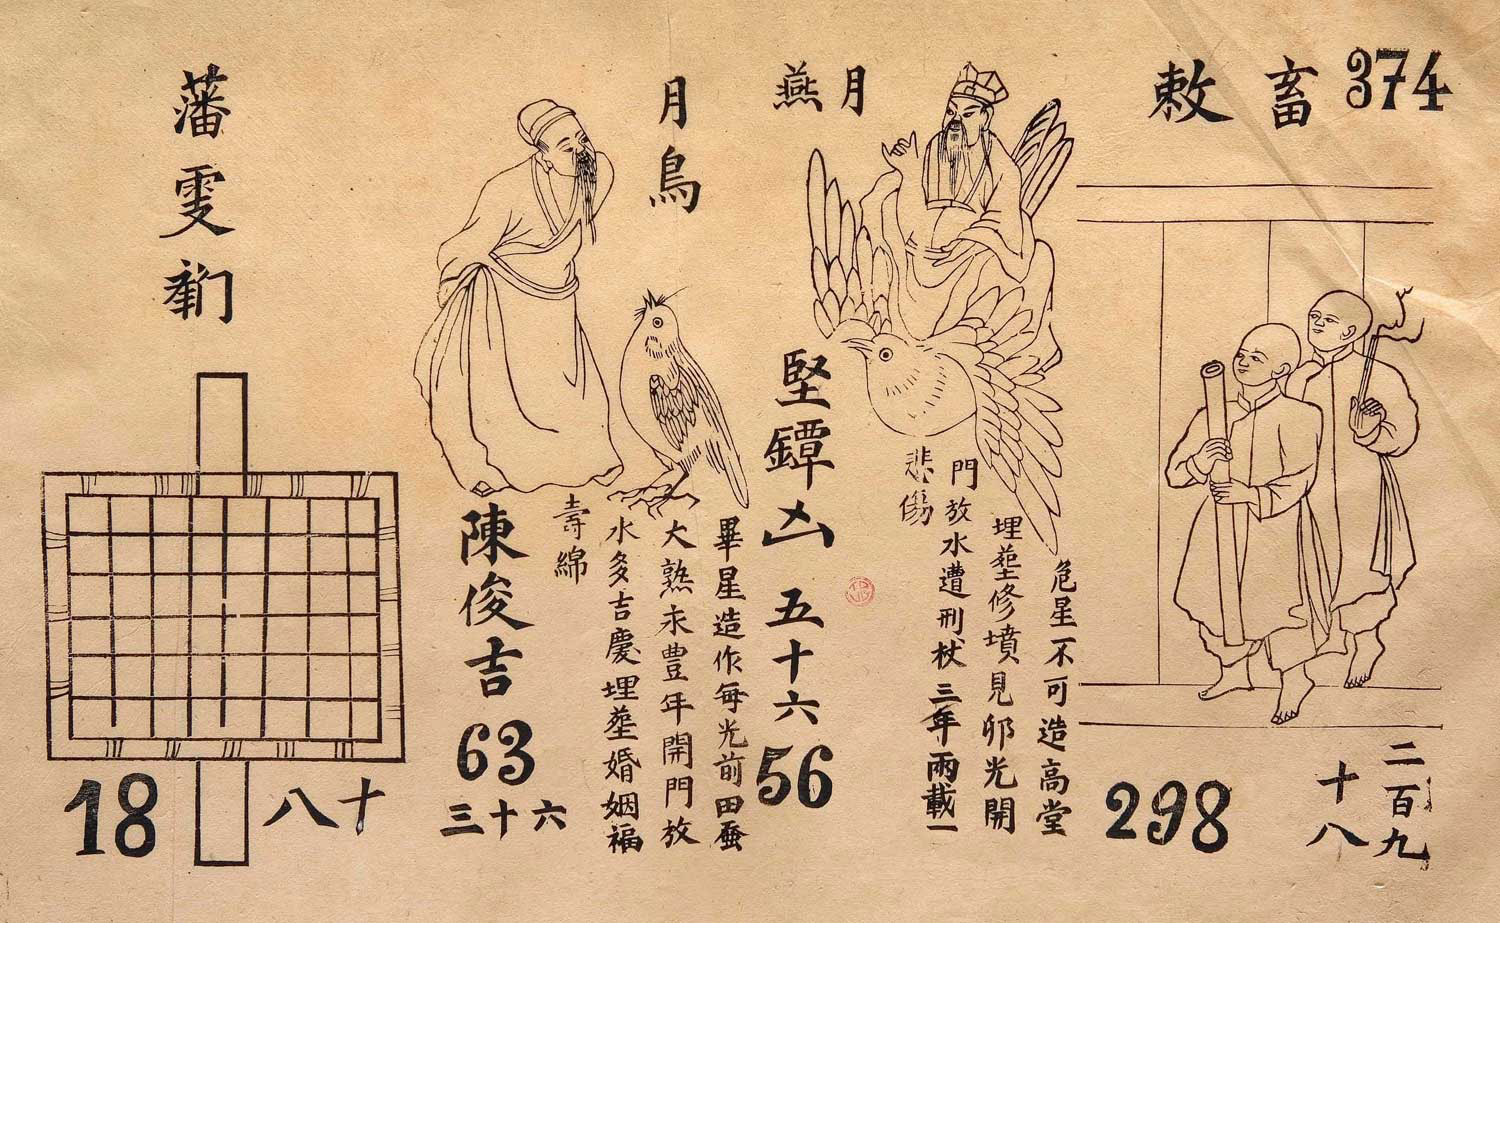 畜敕
374
二百九
十八
298
月燕
危星不可造高堂
埋塟修墳見卯光開
門放水遭刑杖三年兩載一
悲傷
堅鐔凶五十六
56
月鳥
畢星造作每光前田蚕
大熟禾豊年開門放
水多吉慶埋塟婚姻福
壽綿
陳俊吉
63
六十三
藩
十八
18